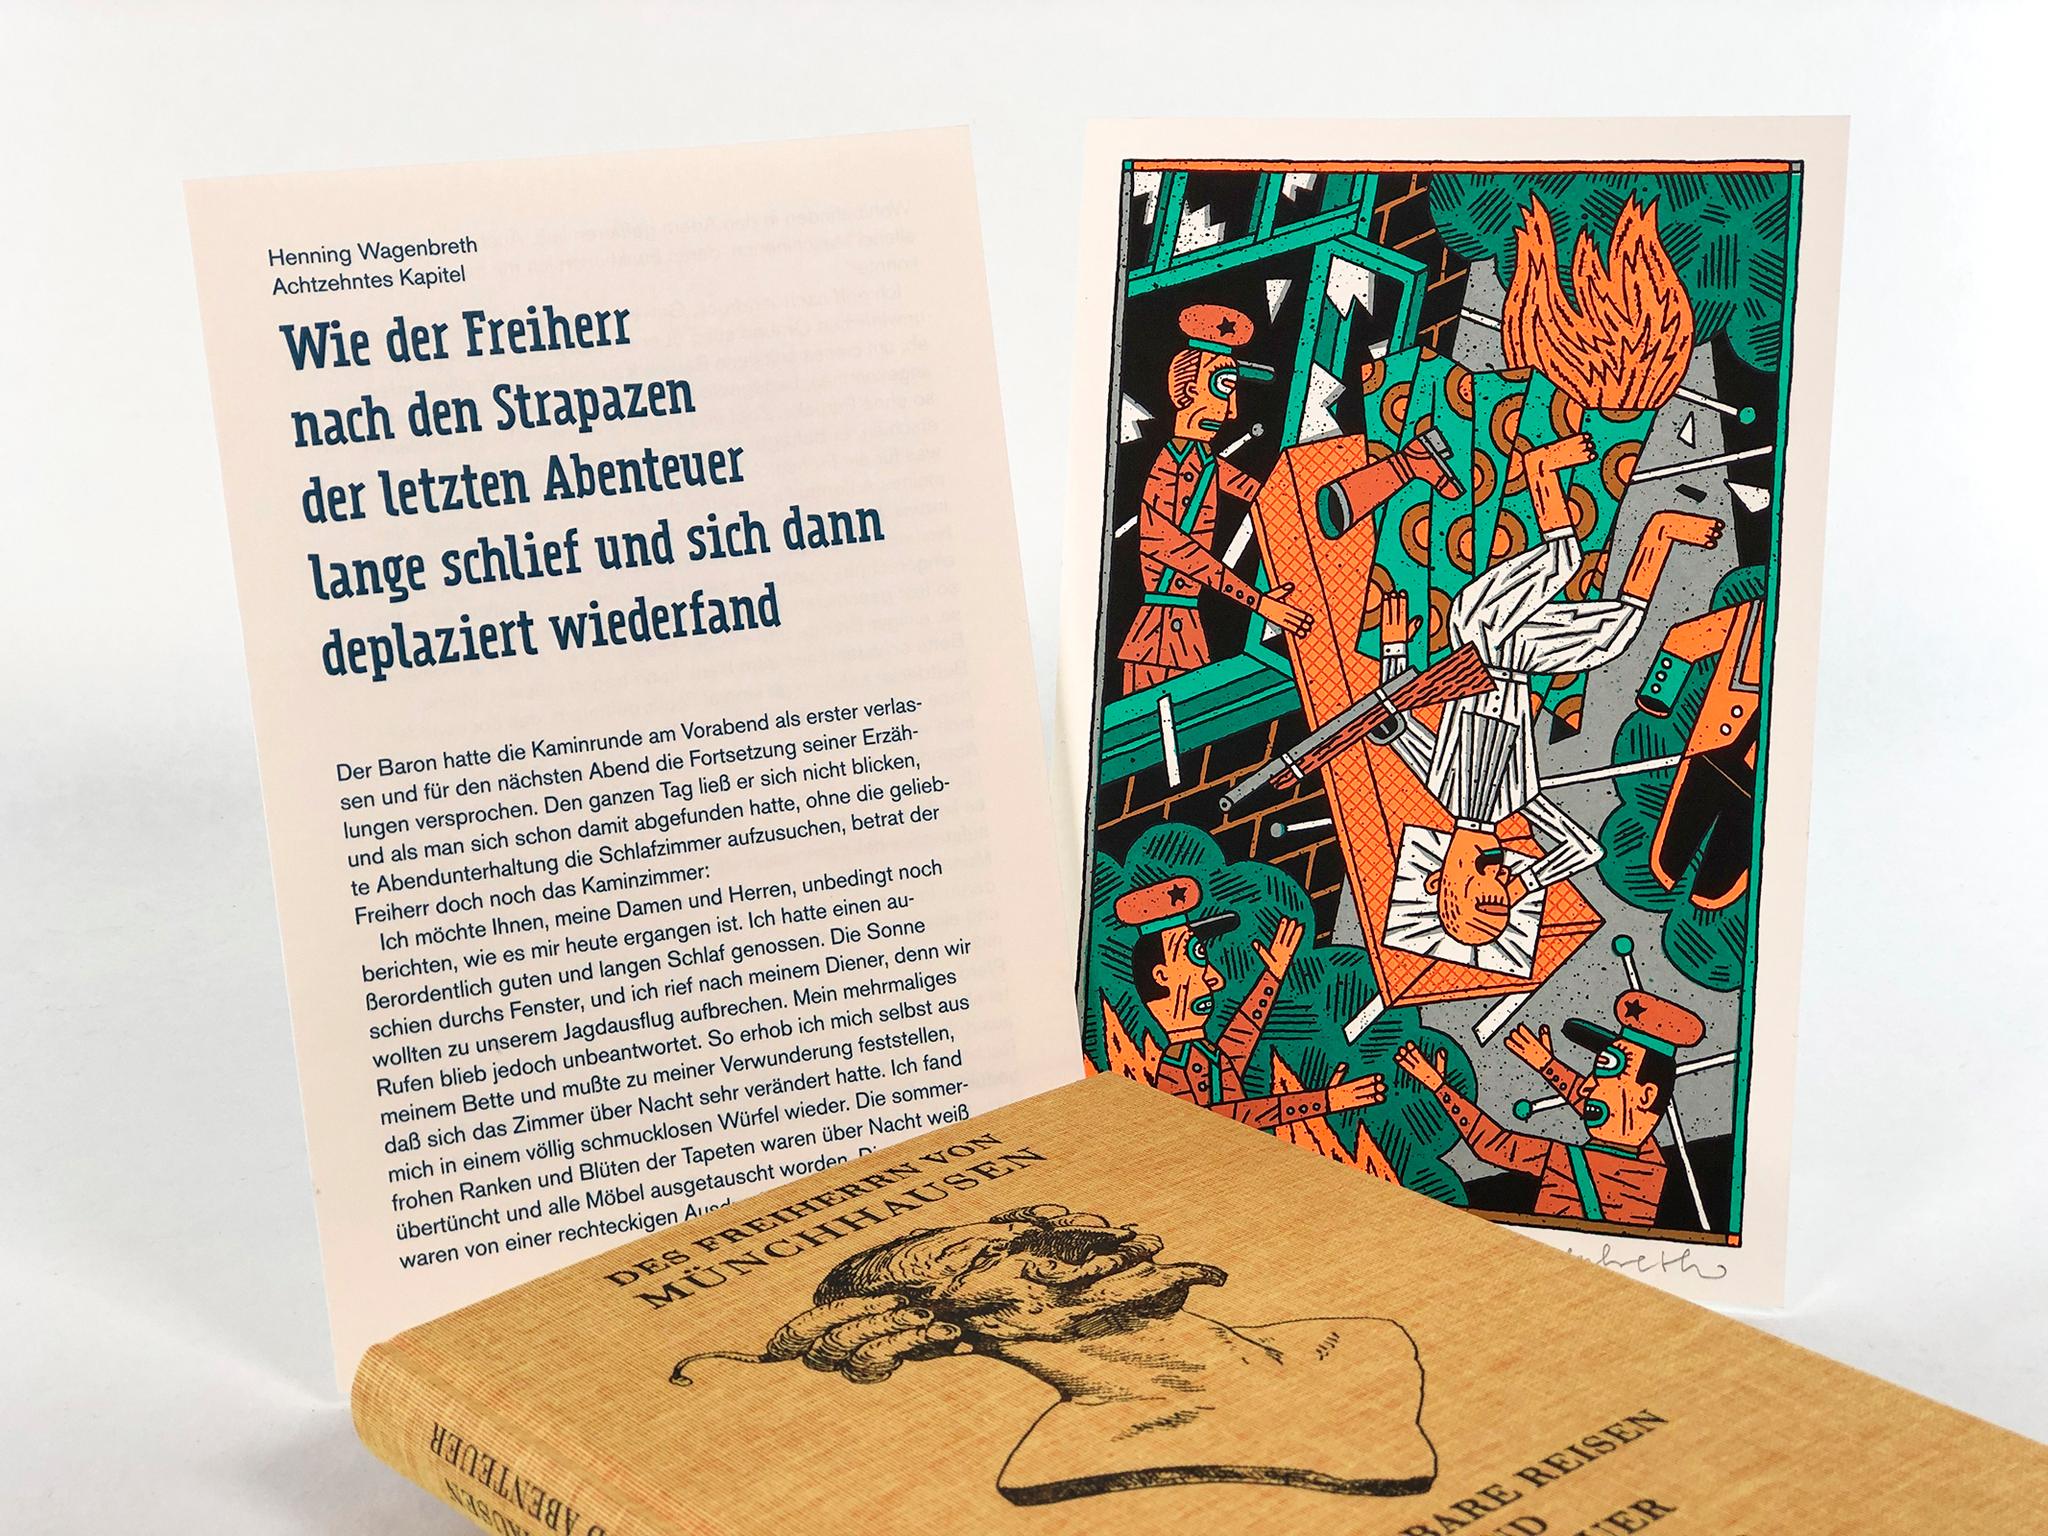 Henning Wagenbreth
Achtzehntes Kapitel
Wie der Freiherr
nach den Strapazen
der letzten Abenteuer
lange schlief und sich dann
deplaziert wiederfand
Der Baron hatte die Kaminrunde am Vorabend als erster verlas-
sen und für den nächsten Abend die Fortsetzung seiner Erzäh-
lungen versprochen. Den ganzen Tag ließ er sich nicht blicken,
und als man sich schon damit abgefunden hatte, ohne die gelieb-
te Abendunterhaltung die Schlafzimmer aufzusuchen, betrat der
Freiherr doch noch das Kaminzimmer:
Ich möchte Ihnen, meine Damen und Herren, unbedingt noch
berichten, wie es mir heute ergangen ist. Ich hatte einen au-
ßerordentlich guten und langen Schlaf genossen. Die Sonne
schien durchs Fenster, und ich rief nach meinem Diener, denn wir
wollten zu unserem Jagdausflug aufbrechen. Mein mehrmaliges
Rufen blieb jedoch unbeantwortet. So erhob ich mich selbst aus
meinem Bette und mußte zu meiner Verwunderung feststellen,
daß sich das Zimmer über Nacht sehr verändert hatte. Ich fand
mich in einem völlig schmucklosen Würfel wieder. Die sommer-
frohen Ranken und Blüten der Tapeten waren über Nacht weiß
übertüncht und alle Möbel ausgetauscht worden.
waren von einer rechteckigen
DES FREIHERRN VON
MÜNCHHAUSEN
BARE REISEN
ND
UER
D ABENTEUER
AUSEN